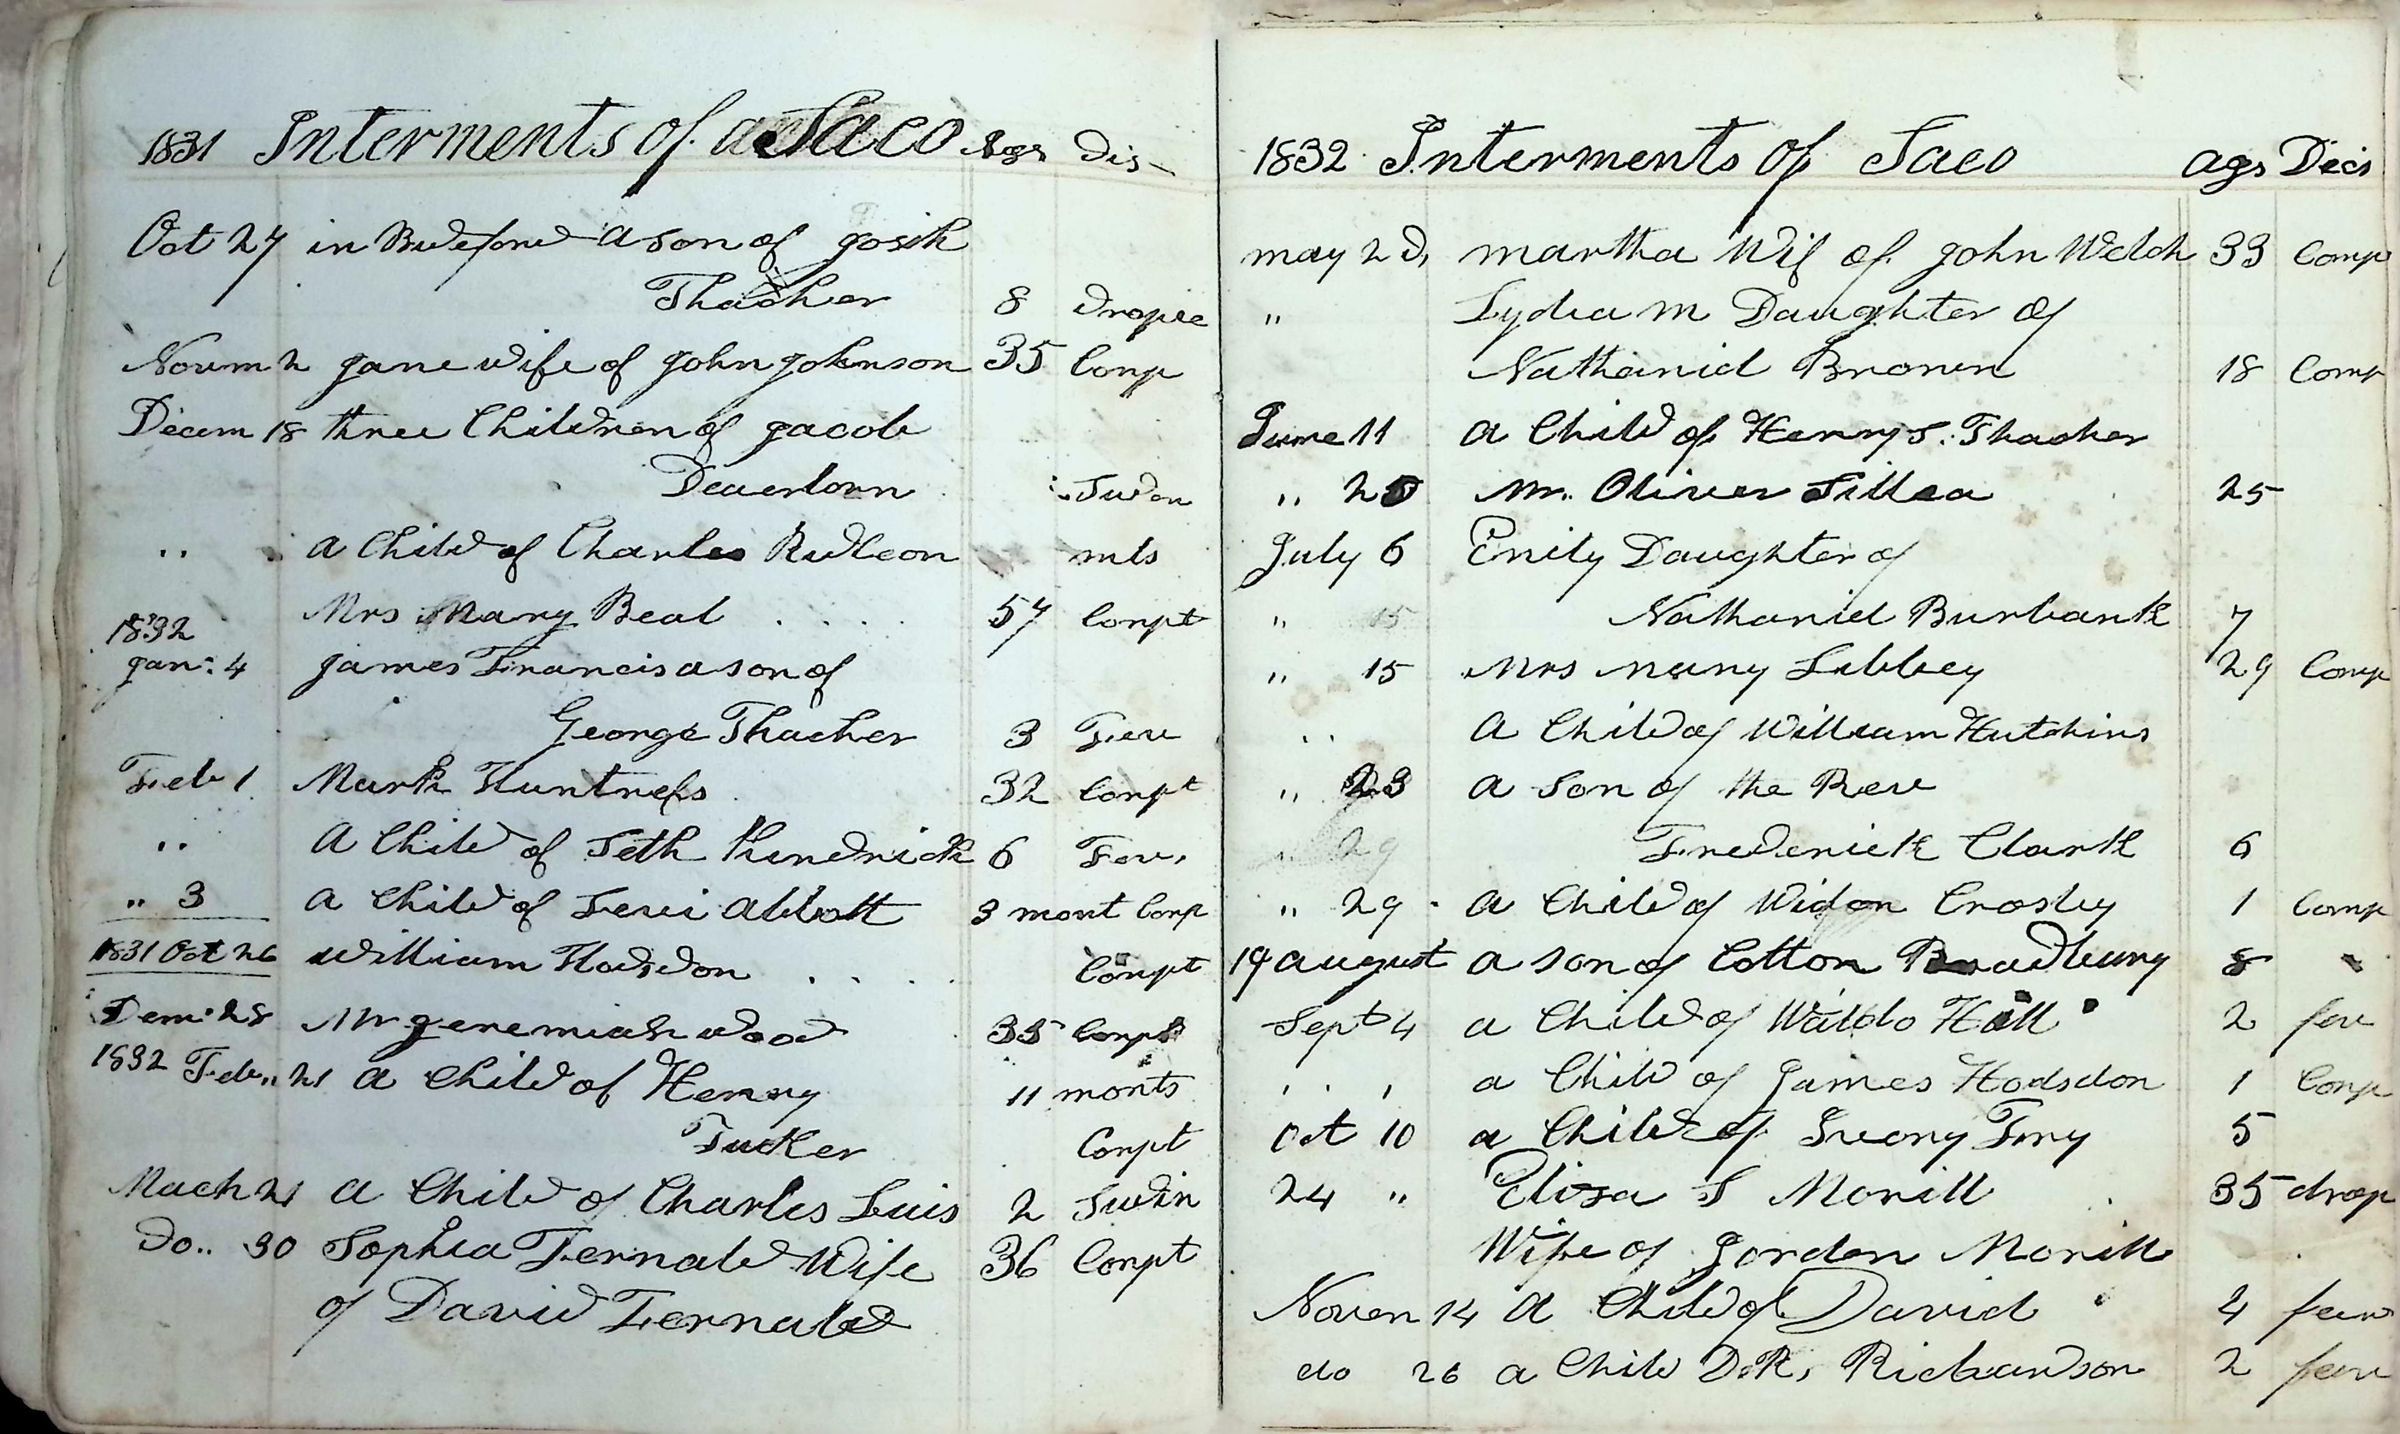 1831 Interments of Saco Ags Dis
Oct 27 in Bideford a son of Josih
Thacher 8 dropse
Novem 2 Jane wife of John Johnson 35 Conp
Decem 18 three Children of Jacob
Deuerborn Suden
" a Child of Charles Rudleon mls
Mrs Mary Beal 57 Conpt
1832
Jan: 4 James Francis a son of
George Thacher 3 Feve
Feb 1 Mark Huntress 32 Conpt
" A Child of Seth Kindrick 6 Fev,
" 3 a Child of Levi Abbott 3 mont Conp
1831 Oct 26 William Hodsdon Conpt
Dem: 28 Mr Jeremiah Wood 35 Conpt
1832 Feb,, 21 a Child of Henry 11 monts
Tucker Conpt
Mach 21 A Child of Charles Luis 2 Sudin
Do.. 30 Sophia Fernald Wife 36 Conpt
of David Fernald
1832 Interments of Saco ags Deis
may 2d, martha Wif of John Welch 33 Conp
" Lydia M Daughter of
Nathaniel Brown 18 Conp
June 11 a Child of Henry S. Thacher
" 25 Mr. Oliver Fillea 25
July 6 Emily Daughter of
" 15 Nathaniel Burbank 7
" 15 Mrs Mary Libbey 29 Conp
" a Child of William Hutchins
" 23 a Son of the Rev
" 29 Frederick Clark 6
" 29 a Child of Widon Crosby 1 Conp
19 august a son of Cotton Bradbury 8 "
Sept 4 a Child of Waldo Hill 2 fev
" " a Child of James Hodsdon 1 Conp
Oct 10 a Child of Ivory Fmy 5
24 " Elisa S Morill 35 drop
Wife of Jordan Morill
Noven 14 A Child of David 4 feve
do 26 a Child D.R, Richardson 2 feve